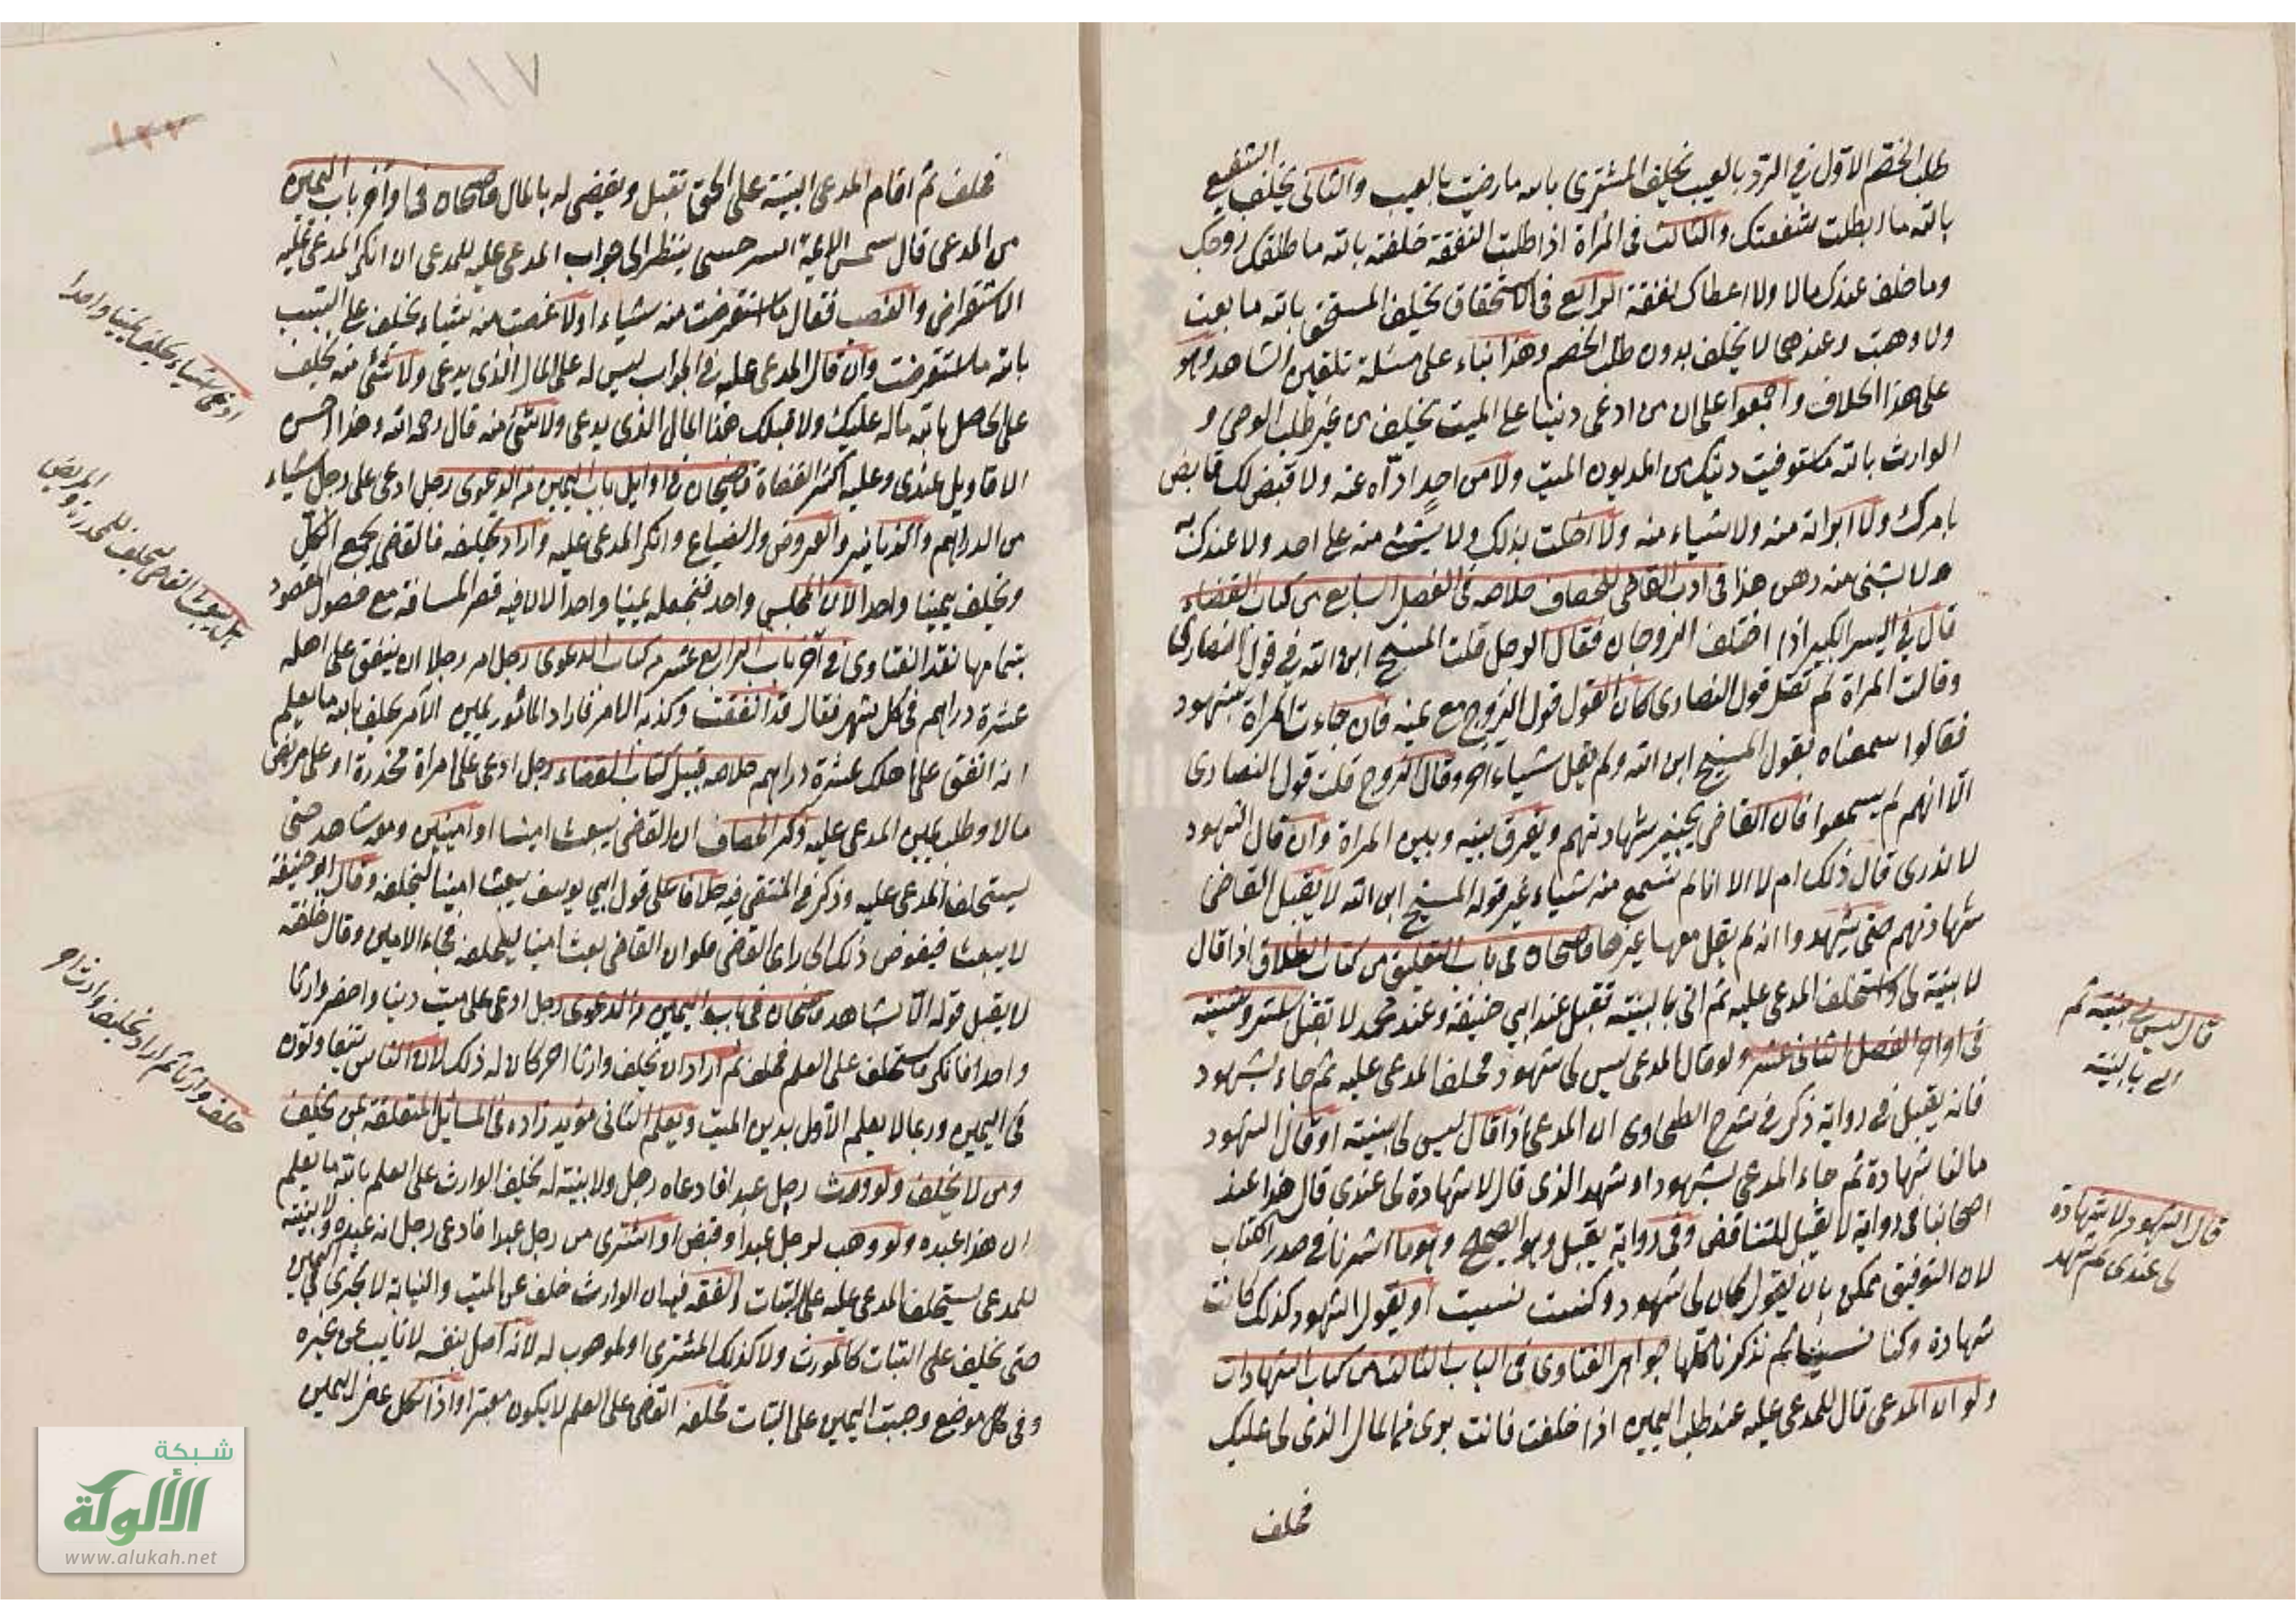 طلب الخصم الاول في الرد بالعيب يحلف المشترى بالله ما رضيت بالعيب والثانى يحلف الشفيع
بالله ما ابطلت شفعتك والثالث فى المرأة اذا طلبت النفقة حلفته بالله ما طلقك زوجك
وما خلف عندك مالا ولا اعطاك نفقة الرابع فى الاستحقاق يحلف المستحق بالله ما بعت
ولا وهبت وعندهما لا يحلف بدون طلب الخصم وهذا بناء على مسئلة تلقين الشاهد وهو
على هذا الخلاف واجمعوا على ان من ادعى دينا على الميت يحلف من غير طلب الوصى و
الوارث بالله ما استوفيت دينك من المديون الميت ولا من احد اداه عنه ولا قبض لك قابض
بامرك ولا ابراته منه ولا شياء منه ولا احلت بذلك ولا بشئ منه على احد ولا عندك به
ولا بشئ منه رهن هذا فى ادب القاضى للخصاف خلاصه فى الفصل السابع من كتاب القضاء
قال في السير الكبير اذا اختلف الزوجان فقال الرجل قلت المسيح ابن الله في قول النصارى
وقالت المراة لم تقل قول النصارى كان القول قول الزوج مع يمينه فان جاءت المراة بشهود
فقالوا سمعناه يقول المسيح ابن الله ولم يقل شياء اخر وقال الزوج قلت قول النصارى
الا انهم لم يسمعوا فان القاضى يجيز شهادتهم ويفرق بينه وبين المراة وان قال الشهود
لا ندرى قال ذلك ام لا الا انا لم نسمع منه شياء غير قوله المسيح ابن الله لا يقبل القاضى
شهادتهم حتى يشهدوا انه لم يقل معها غيرها قاضيخان فى باب التعليق من كتاب الطلاق اذا قال
لا بينة لى واستحلف المدعى عليه ثم اتى بالبينة تقبل عند ابي حنيفة وعند محمد لا تقبل
فى اواخر الفصل الثانى عشر ولو قال المدعى ليس لى شهود فحلف المدعى عليه ثم جاء بشهود
فانه يقبل فى رواية ذكر في شرح الطحاوى ان المدعى اذا قال ليس لى بينة او قال الشهود
ما لنا شهادة ثم جاء المدعى بشهود او شهد الذى قال لا شهادة لى عندى قال هذا عند
اصحابنا فى رواية لا تقبل للتناقض وفى رواية يقبل وهو الصحيح وهو ما اشرنا فى صدر الكتاب
لان التوفيق ممكن بان يقول كان لى شهود وكنت نسيت او يقول الشهود كذلك كانت
شهادة وكنا نسينا ثم تذكرنا كلها جواهر الفتاوى فى الباب الثالث من كتاب الشهادات
ولو ان المدعى قال للمدعى عليه عند طلب اليمين اذا حلفت فانت برى من المال الذى لى عليك
فحلف
قال ليس لى بينة ثم
اتى بالبينة
قال الشهود لا شهادة
لى عندى ثم شهد
١١٧
فحلف ثم اقام المدعى البينة على الحق تقبل ويقضى له بالمال قاضيخان فى اواخر باب اليمين
من المدعى قال شمس الائمة السرخسى ينظر الى جواب المدعى عليه للمدعى ان انكر المدعى عليه
الاستقراض والغصب فقال ما استقرضت منه شياء او لا غصبت منه شياء يحلف على السبب
بالله ما استقرضت وان قال المدعى عليه في الجواب ليس له على المال الذى يدعى ولا شئ منه يحلف
على الحاصل بالله ماله عليك ولا قبلك هذا المال الذى يدعى ولا شئ منه قال رحمه الله وهذا احسن
الاقاويل عندى وعليه اكثر القضاة قاضيخان فى اوايل باب اليمين من الدعوى رجل ادعى على رجل شياء
من الدراهم والدنانير والعروض والضياع وانكر المدعى عليه واراد تحليفه فالقاضى يجمع الكل
ويحلف يمينا واحدا لان المجلس واحد فنجعله يمينا واحدا لان فيه قصر المسافة مع حصول المقصود
بتمامها نقد الفتاوى في آخر باب الرابع عشر من كتاب الدعوى رجل امر رجلا ان ينفق على اهله
عشرة دراهم فى كل شهر فقال قد انفقت وكذبه الآمر فاراد المأمور يمين الآمر يحلف بالله ما يعلم
انه انفق على اهلك عشرة دراهم خلاصه قبيل كتاب القضاء رجل ادعى على امراة مخدرة او على مريض
مالا وطلب يمين المدعى عليه ذكر الخصاف ان القاضى يبعث امينا او امينين ومعه شاهد حتى
يستحلف المدعى عليه وذكر في المنتقى فيه خلافا على قول ابي يوسف يبعث امينا ليحلفه وقال ابو حنيفة
لا يبعث فيفوض ذلك الى راى القاضى فلو ان القاضى بعث امينا ليحلفه فجاء الامين وقال حلفته
لا يقبل قوله الا بشاهد قاضيخان فى باب اليمين من الدعوى رجل ادعى على ميت دينا واحضر وارثا
واحدا فانكر فاستحلف على العلم فحلف ثم اراد ان يحلف وارثا اخر كان له ذلك لان الناس يتفاوتون
فى اليمين وربما لا يعلم الاول بدين الميت ويعلم الثانى مؤيد زاده فى المسائل المتعلقة بمن يحلف
ومن لا يحلف ولو ورث رجل عبدا فادعاه رجل ولا بينة له يحلف الوارث على العلم بالله ما يعلم
ان هذا عبده ولو وهب لرجل عبدا وقبض او اشترى من رجل عبدا فادعى رجل انه عبده ولا بينة
للمدعى يستحلف المدعى عليه على البتات والفقه فيه ان الوارث خلف عن الميت والنيابة لا تجرى فى اليمين
حتى يحلف على البتات كالمورث ولا كذلك المشترى او الموهوب له لانه اصل بنفسه لا نايب عن غيره
وفى كل موضع وجبت اليمين على البتات فحلفه القاضى على العلم لا يكون معتبرا واذا نكل عن اليمين
ادعى اشياء يحلف يمينا واحدا
هل يبعث القاضى من يحلف المخدرة والمريض
حلف وارثا ثم اراد تحليف وارث اخر
شبكة
الألوكة
www.alukah.net